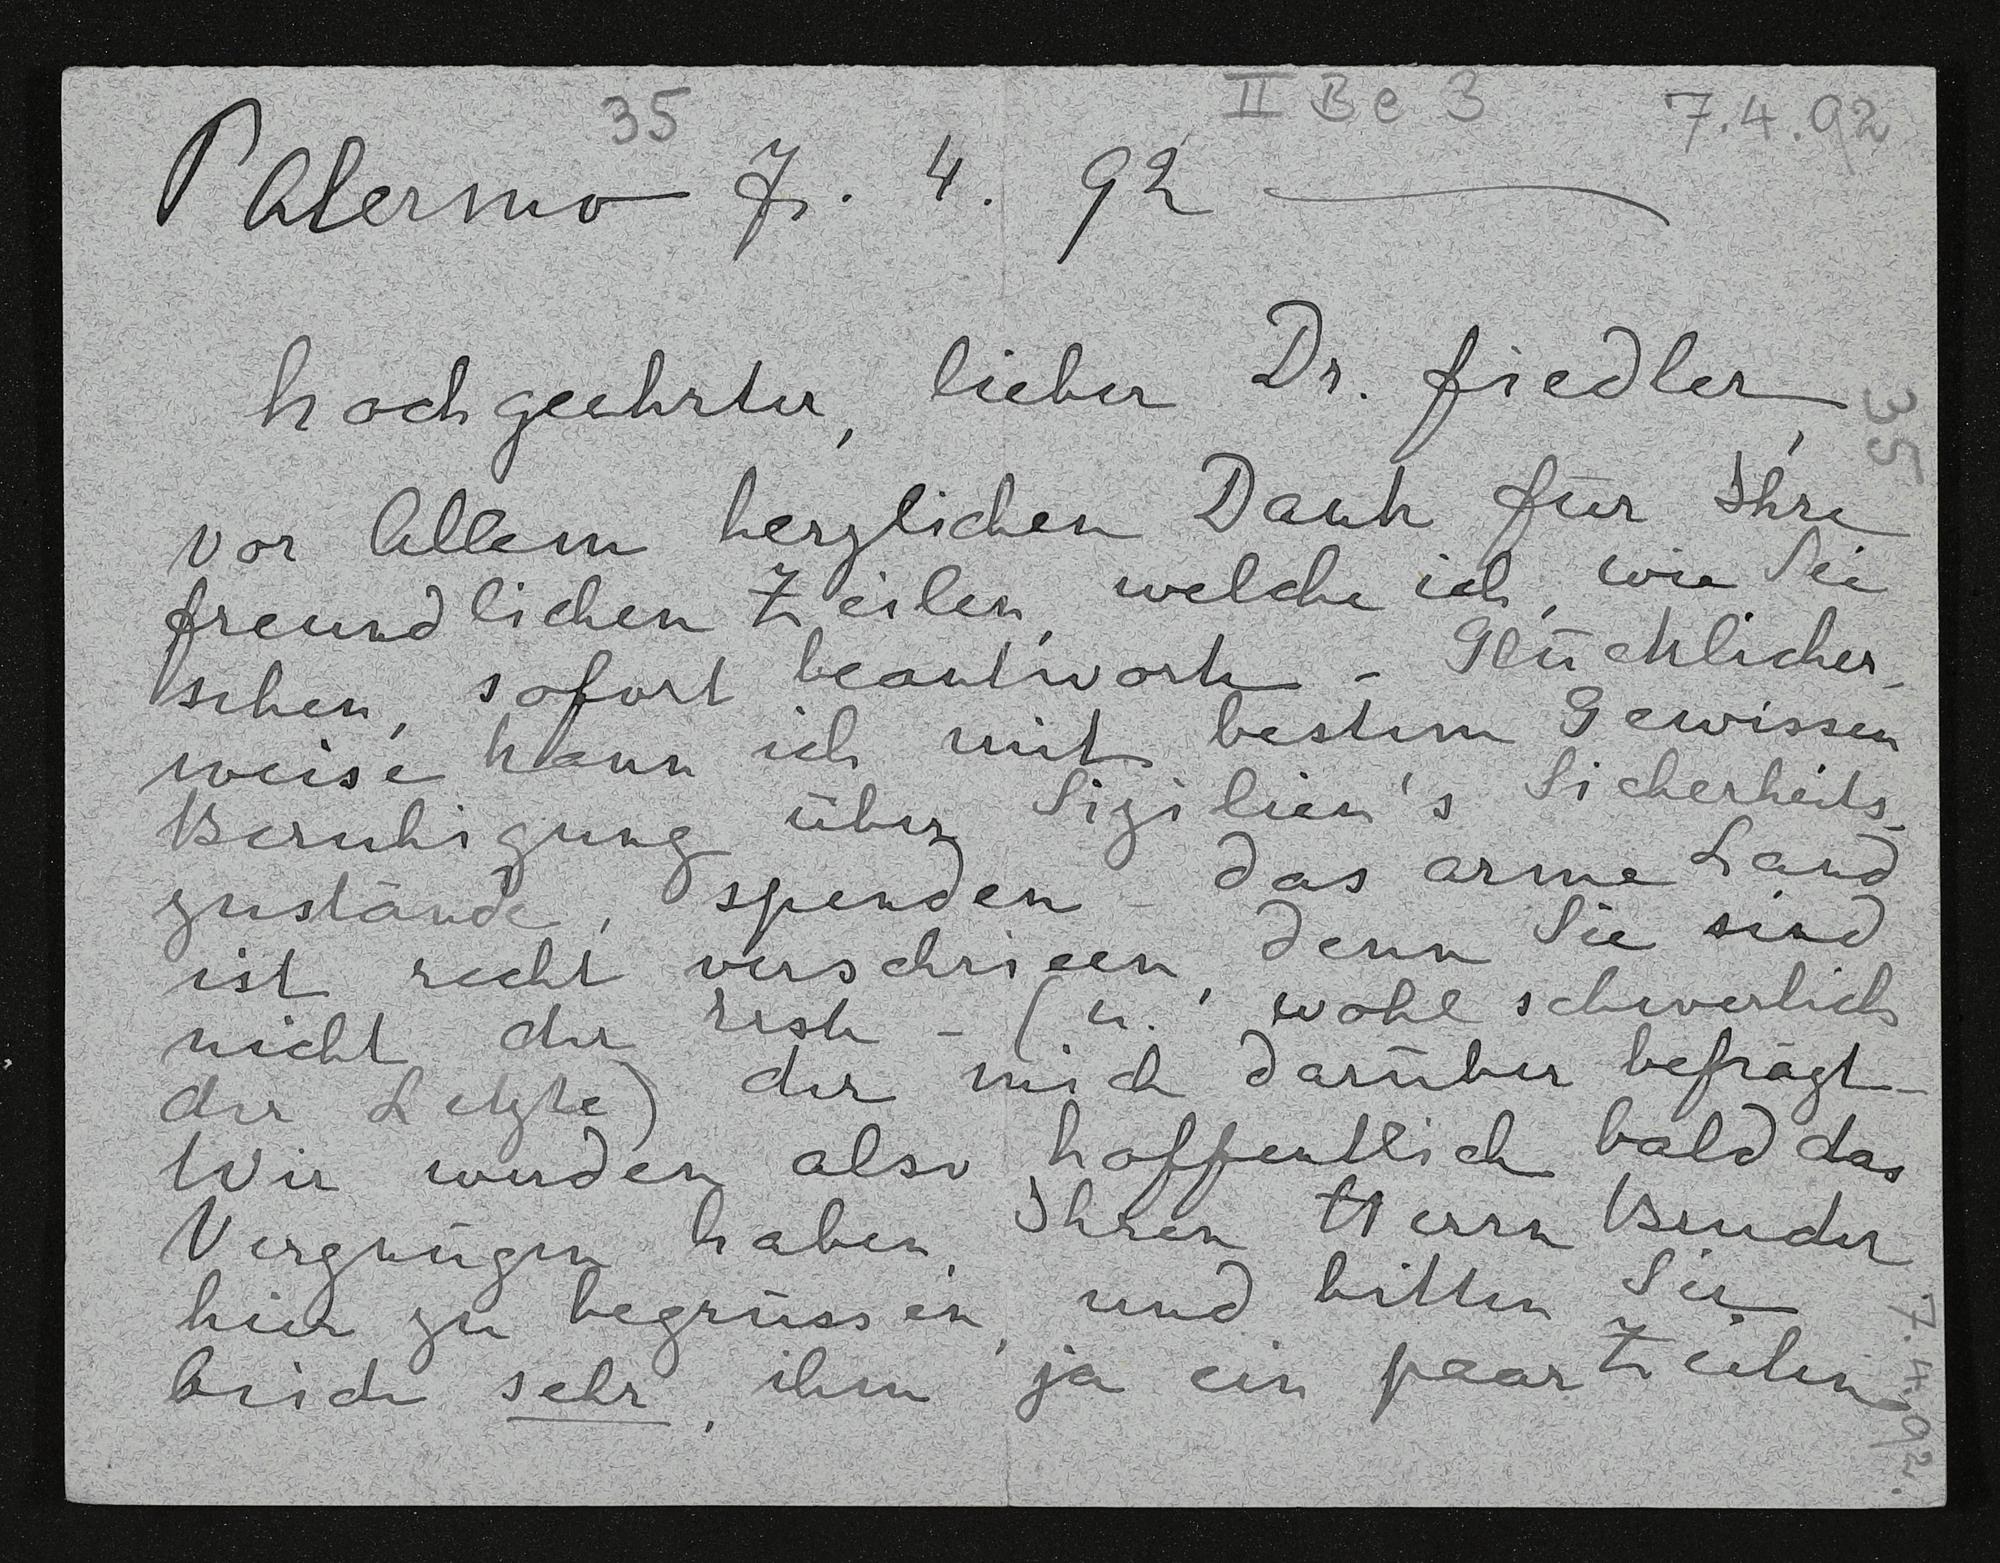 35
II Be 3
7.4.92
Palermo 7. 4. 92
hochgeehrter, lieber Dr. Fiedler,
vor Allem herzlichen Dank für Ihre
freundlichen Zeilen, welche ich, wie Sie
sehen, sofort beantworte - Glücklicher-
weise kann ich mit bestem Gewissen
Beruhigung über Sizilien's Sicherheits-
zustände, spenden - das arme Land
ist recht verschrieen, denn Sie sind
nicht der erste - (u. wohl schwerlich
der Letzte) der mich darüber befrägt -
Wir werden also hoffentlich bald das
Vergnügen haben, Ihren Herrn Bruder
hier zu begrüssen, und bitten Sie
beide sehr, ihm ja ein paar Zeilen
35
7.4.92.